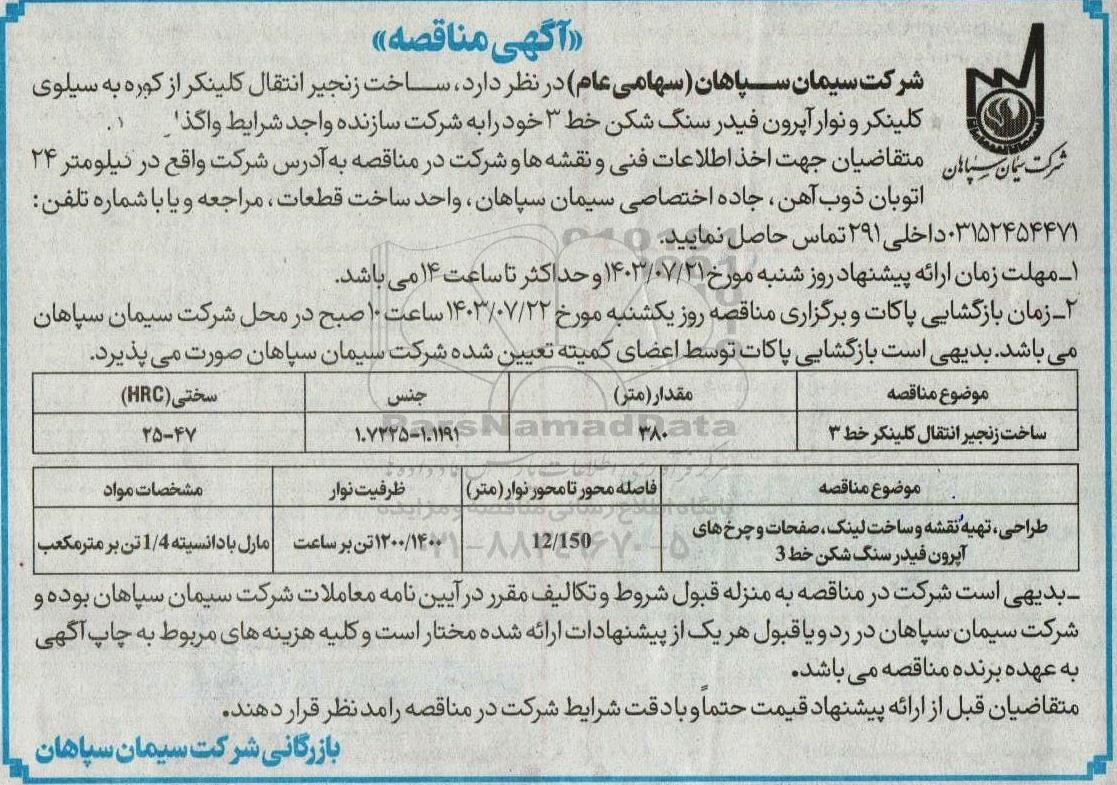 «آگهی مناقصه»
شرکت سیمان سپاهان (سهامی عام) در نظر دارد، ساخت زنجیر انتقال کلینکر از کوره به سیلوی
کلینکر و نوار آپرون فیدر سنگ شکن خط ۳ خود را به شرکت سازنده واجد شرایط
متقاضیان جهت اخذ اطلاعات فنی و نقشه ها و شرکت در مناقصه به آدرس شرکت واقع در کیلومتر ۲۴
اتوبان ذوب آهن، جاده اختصاصی سیمان سپاهان، واحد ساخت قطعات، مراجعه و یا با شماره تلفن:
۰۳۱۵۲۴۵۴۴۷۱ داخلی ۲۹۱ تماس حاصل نمایید.
شرکت سیمان سپاهان
۱ـ مهلت زمان ارائه پیشنهاد روز شنبه مورخ ۱۴۰۳/۰۷/۲۱ و حداکثر تا ساعت ۱۴ می باشد.
۲ـ زمان بازگشایی پاکات و برگزاری مناقصه روز یکشنبه مورخ ۱۴۰۳/۰۷/۲۲ ساعت ۱۰ صبح در محل شرکت سیمان سپاهان
می باشد. بدیهی است بازگشایی پاکات توسط اعضای کمیته تعیین شده شرکت سیمان سپاهان صورت می پذیرد.
موضوع مناقصه مقدار (متر) جنس سختی (HRC)
ساخت زنجیر انتقال کلینکر خط ۳ ۳۸۰ ۱.۷۲۲۵-۱.۱۱۹۱ ۲۵-۴۷
ParsNamadData
موضوع مناقصه فاصله محور تا محور نوار (متر) ظرفیت نوار مشخصات مواد
پایگاه اطلاع رسانی مناقصه و مزایده
طراحی، تهیه نقشه و ساخت لینک، صفحات و چرخ های
آپرون فیدر سنگ شکن خط 3 12/150 ۱۲۰۰/۱۴۰۰ تن بر ساعت مارل با دانسیته 1/4 تن بر مترمکعب
ـ بدیهی است شرکت در مناقصه به منزله قبول شروط و تکالیف مقرر در آیین نامه معاملات شرکت سیمان سپاهان بوده و
شرکت سیمان سپاهان در رد و یا قبول هر یک از پیشنهادات ارائه شده مختار است و کلیه هزینه های مربوط به چاپ آگهی
به عهده برنده مناقصه می باشد.
متقاضیان قبل از ارائه پیشنهاد قیمت حتماً و با دقت شرایط شرکت در مناقصه را مد نظر قرار دهند.
بازرگانی شرکت سیمان سپاهان